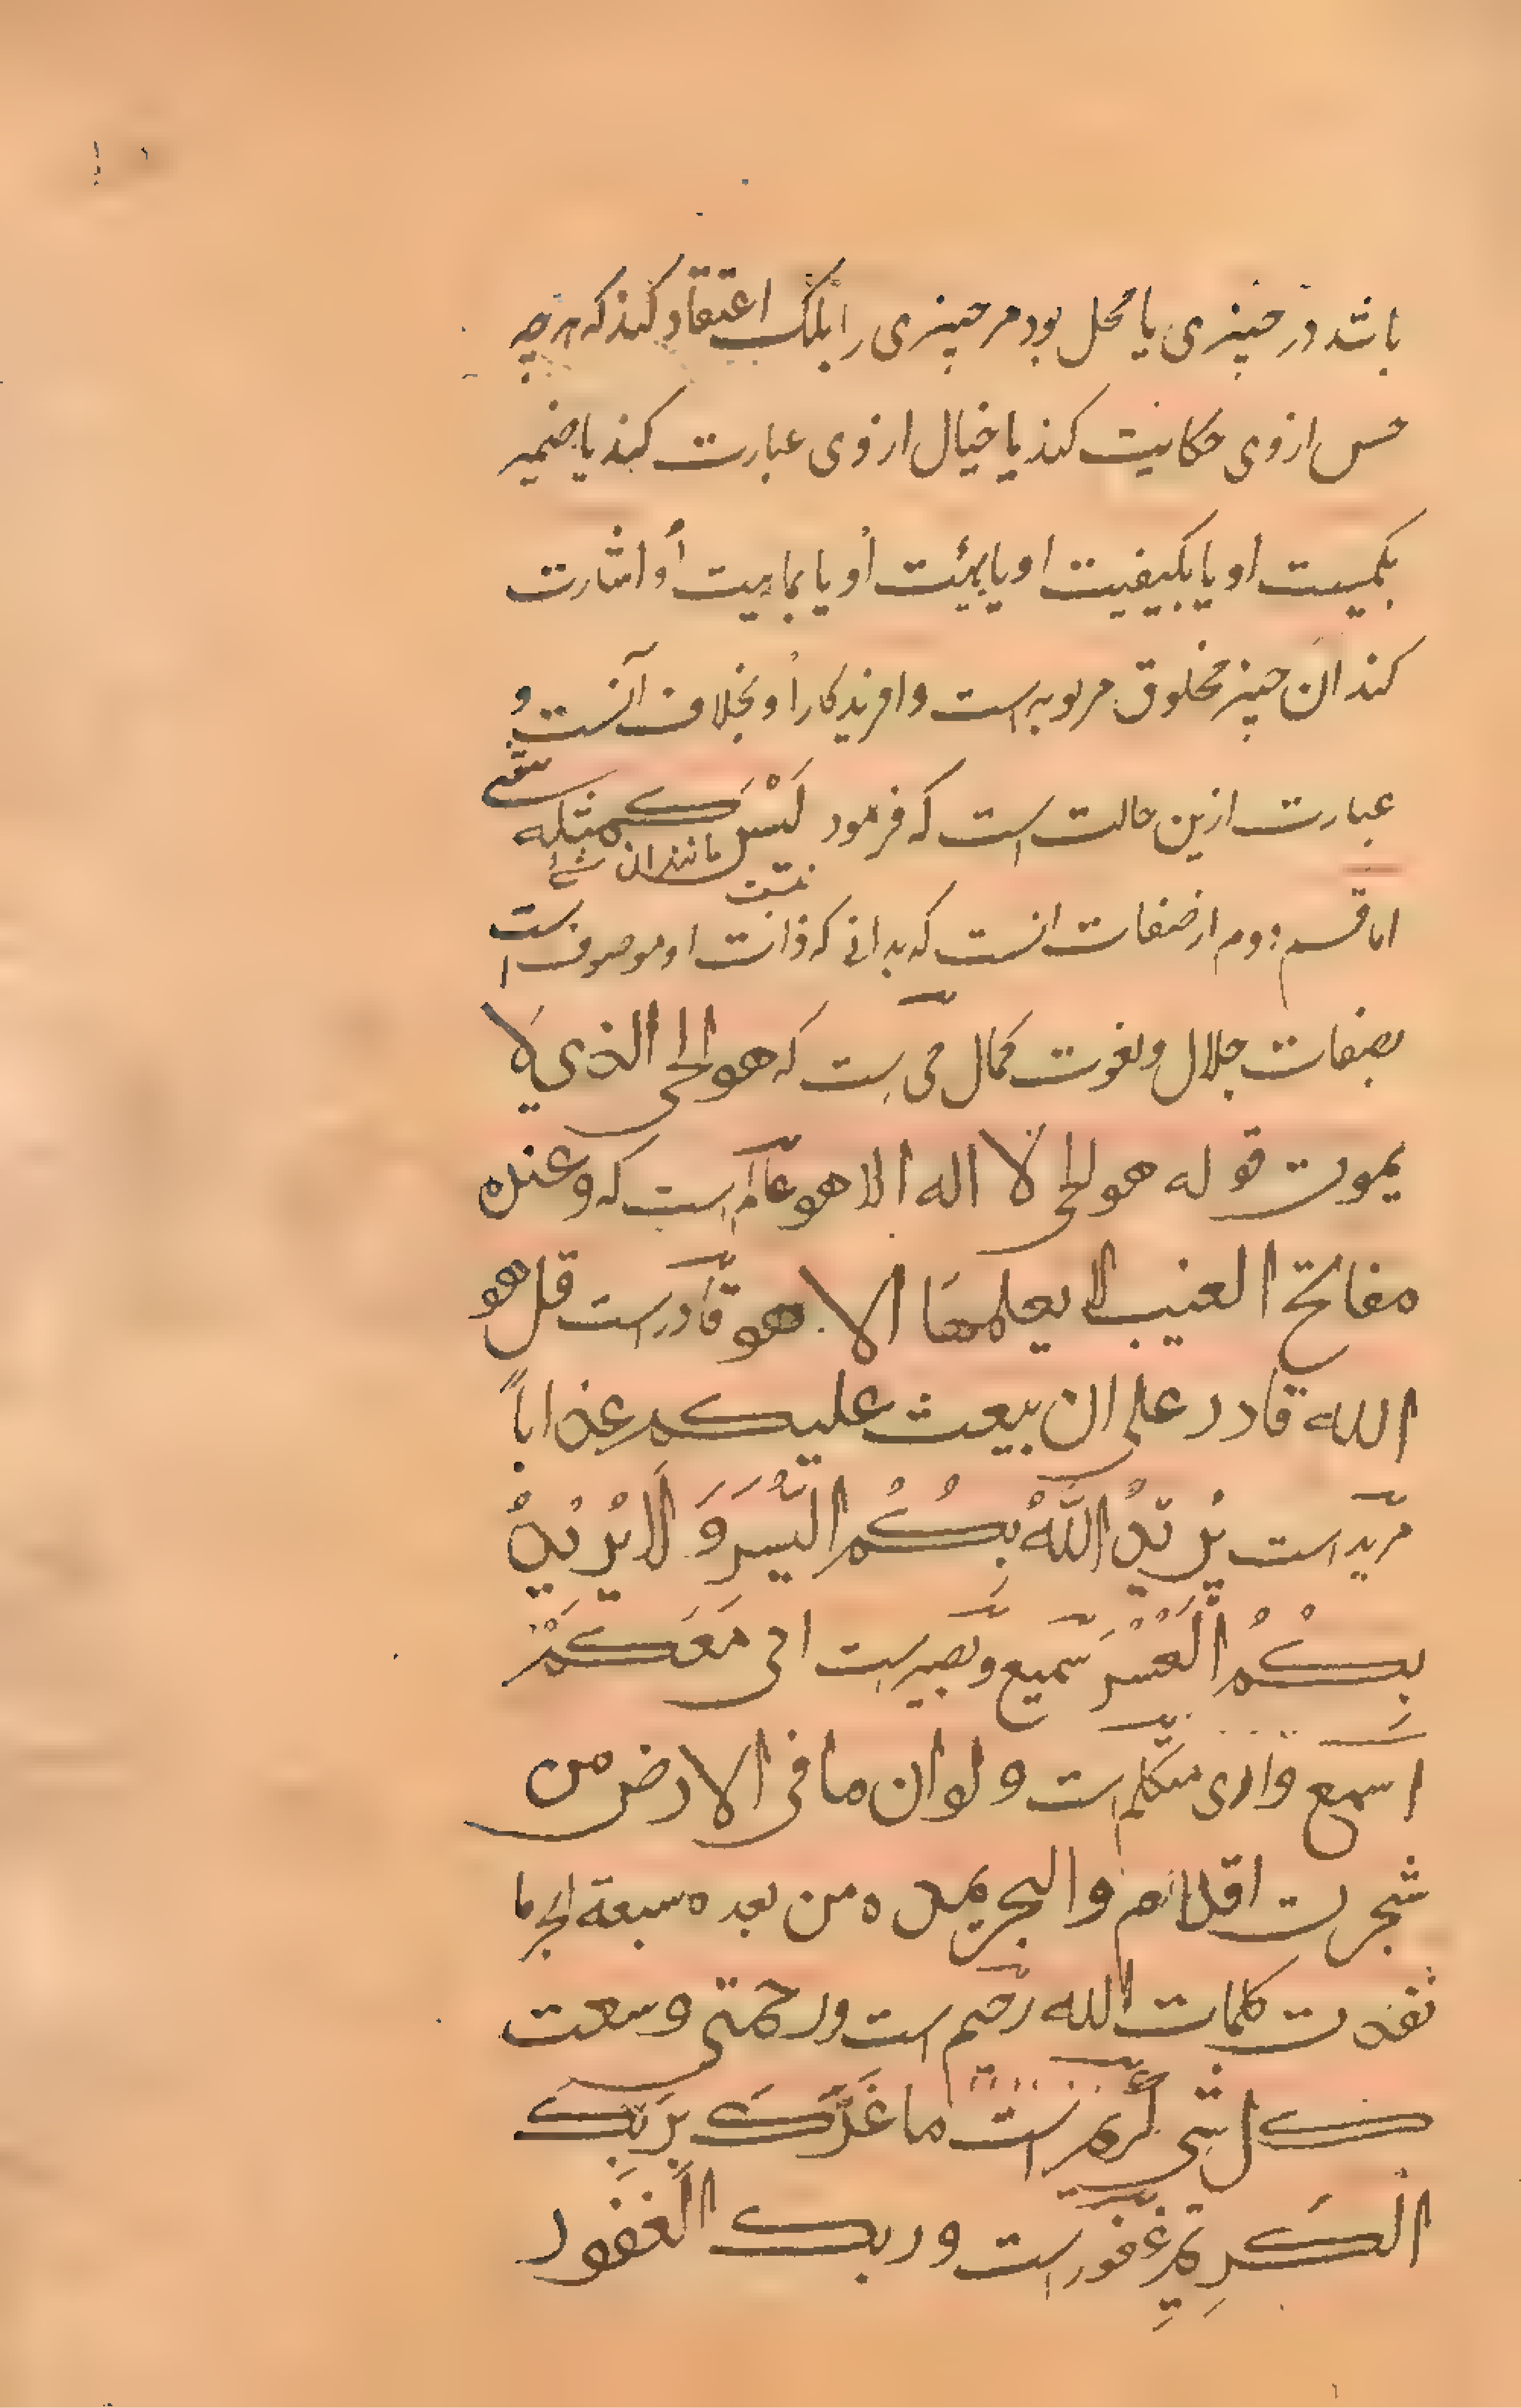 باشد در چیزی یا محل بود مر چیزی را بلک اعتقاد کند که هرچه
حس از وی حکایت کند یا خیال از وی عبارت کند یا ضمیر
بکمیت او یا بکیفیت او یا بهیئت او یا بماهیت او اشارت
کند ان چیز مخلوق مربوبه است وافریدکار او بخلاف آنست و
عبارت ازین حالت است که فرمود لَیْسَ کمثله شی
نیست مانند ان شئ
اما قسم دوم از صفات انست که بدانی که ذات او موصوف است
بصفات جلال ونعوت کمال حی ست که هوالحی الذی لا
یموت قوله هوالحی لا اله الا هو عالم است که وعنده
مفاتح الغیب لا یعلمها الا هو قادر است قل هو
الله قادر علی ان یبعث علیکم عذاباً
مرید است یُرِیْدُ اللّٰهُ بِکُمُ الیُسْرَ وَ لَا یُرِیْدُ
بِکُمُ الْعُسْرَ سمیع و بصیر است انی مَعَکُمْ
اسمع واری متکلم است ولو ان ما فی الارض من
شجرت اقلام والبحر یمده من بعده سبعة ابحر ما
نفدت کلمات الله رحیم است ورحمتی وسعت
کل شی کریم است ما غَرَّکَ بِرَبِّکَ
الْکَرِیْمِ غفور است وربک الْغَفُور